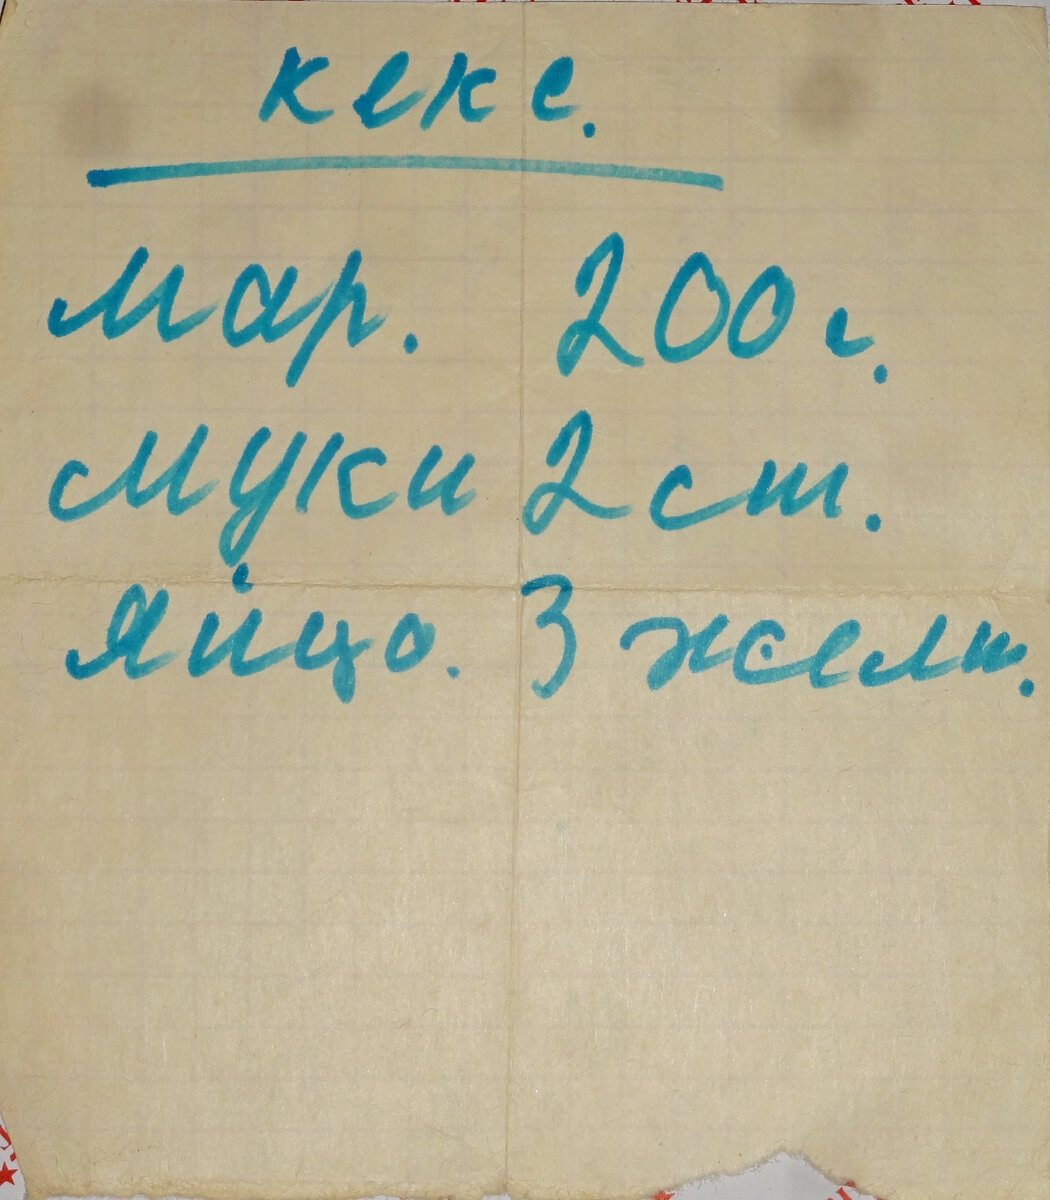 кекс.
мар. 200 г.
муки 2 ст.
яйцо. 3 желт.